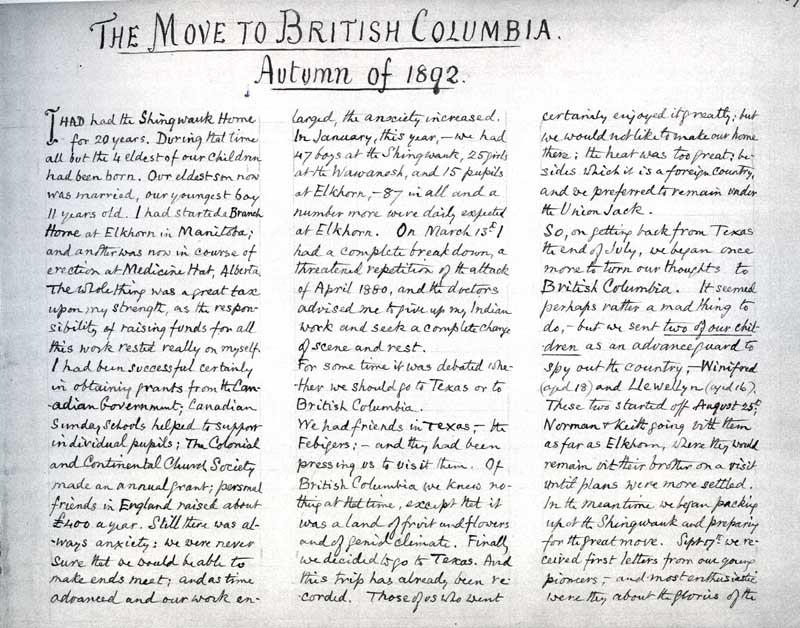 THE MOVE TO BRITISH COLUMBIA.
Autumn of 1892.
I HAD had the Shingwauk Home
for 20 years. During that time
all but the 4 eldest of our children
had been born. Our eldest son now
was married, our youngest boy
11 years old. I had started a Branch
Home at Elkhorn in Manitoba;
and another was now in course of
erection at Medicine Hat, Alberta.
The whole thing was a great tax
upon my strength, as the respon-
sibility of raising funds for all
this work rested really on myself.
I had been successful certainly
in obtaining grants from the Can-
adian Government; Canadian
Sunday Schools helped to support
individual pupils; The Colonial
and Continental Church Society
made an annual grant; personal
friends in England raised about
£400 a year. Still there was al-
ways anxiety: we were never
sure that we would be able to
make ends meet; and as time
advanced and our work en-
larged, the anxiety increased.
In January, this year, - we had
47 boys at the Shingwauk, 25 girls
at the Wawanosh, and 15 pupils
at Elkhorn, - 87 in all and a
number more were daily expected
at Elkhorn. On March 13th I
had a complete breakdown, a
threatened repetition of the attack
of April 1880, and the doctors
advised me to give up my Indian
work and seek a complete change
of scene and rest.
For some time it was debated whe-
ther we should go to Texas or to
British Columbia.
We had friends in Texas, - the
Febigers; - and they had been
pressing us to visit them. Of
British Columbia we knew no-
thing at that time, except that it
was a land of fruit and flowers
and of genial climate. Finally
we decided to go to Texas. And
this trip has already been re-
corded. Those of us who went
certainly enjoyed it greatly; but
we would not like to make our home
there; the heat was too great; be-
sides which it is a foreign country,
and we preferred to remain under
the Union Jack.
So, on getting back from Texas
the end of July, we began once
more to turn our thoughts to
British Columbia. It seemed
perhaps rather a mad thing to
do, - but we sent two of our chil-
dren as an advance guard to
spy out the country, - Winifred
(aged 18) and Llewellyn (aged 16).
These two started off August 25th,
Norman & Keith going with them
as far as Elkhorn, where they would
remain with their brother on a visit
until plans were more settled.
In the meantime we began packing
up at the Shingwauk and preparing
for the great move. Sept 17th we re-
ceived first letters from our young
pioneers, - and most enthusiastic
were they about the glories of the